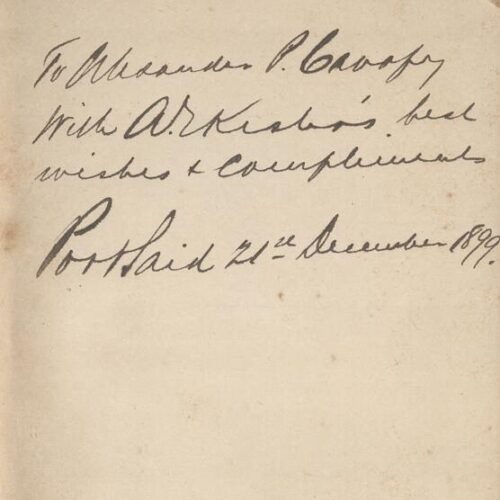 To Alexander P. Cavafy
With best
wishes & Compliments
Port Said 21st December 1899.